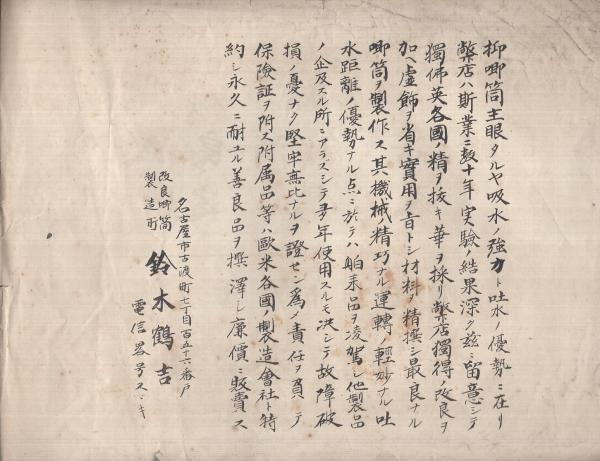 抑喞筒主眼タルヤ吸水ノ強力ト吐水ノ優勢ニ在リ
弊店ハ斯業ニ数十年実験ノ結果深ク茲ニ留意シテ
獨佛英各國ノ精ヲ抜キ華ヲ採リ弊店獨得ノ改良ヲ
加ヘ虚飾ヲ省キ實用ヲ旨トシ材料ヲ精撰シ最良ナル
喞筒ヲ製作ス其機械精巧ナル運轉ノ輕妙ナル吐
水距離ノ優勢ナル点ニ於テハ舶来品ヲ凌駕シ他製品
ノ企及スル所ニアラズシテ多年使用スルモ决シテ故障破
損ノ憂ナク堅牢無比ナルヲ證セン為メ責任ヲ負ヒテ
保險証ヲ附ス附属品等ハ歐米各國ノ製造會社ト特
約シ永久ニ耐ユル善良品ヲ撰澤シ廉價ニ販賣ス
名古屋市古渡町七丁目百五十六番戸
改良喞筒
製造所
鈴木鶴吉
電信畧号スヽキ